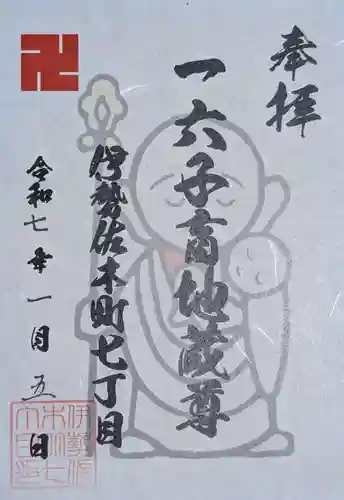 奉拝
一六子育地蔵尊
伊勢佐木町七丁目
令和七年一月五日